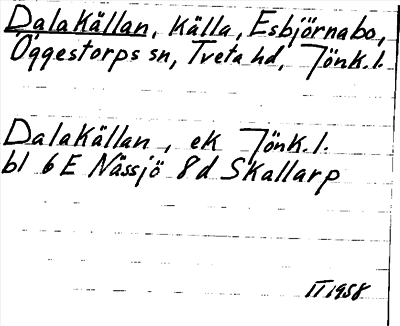 Dalakällan, källa, Esbjörnabo,
Öggestorps sn, Tveta hd, Jönk.l.
Dalakällan, ek Jönk.l.
bl 6E Nässjö 8d Skallarp
II 1958